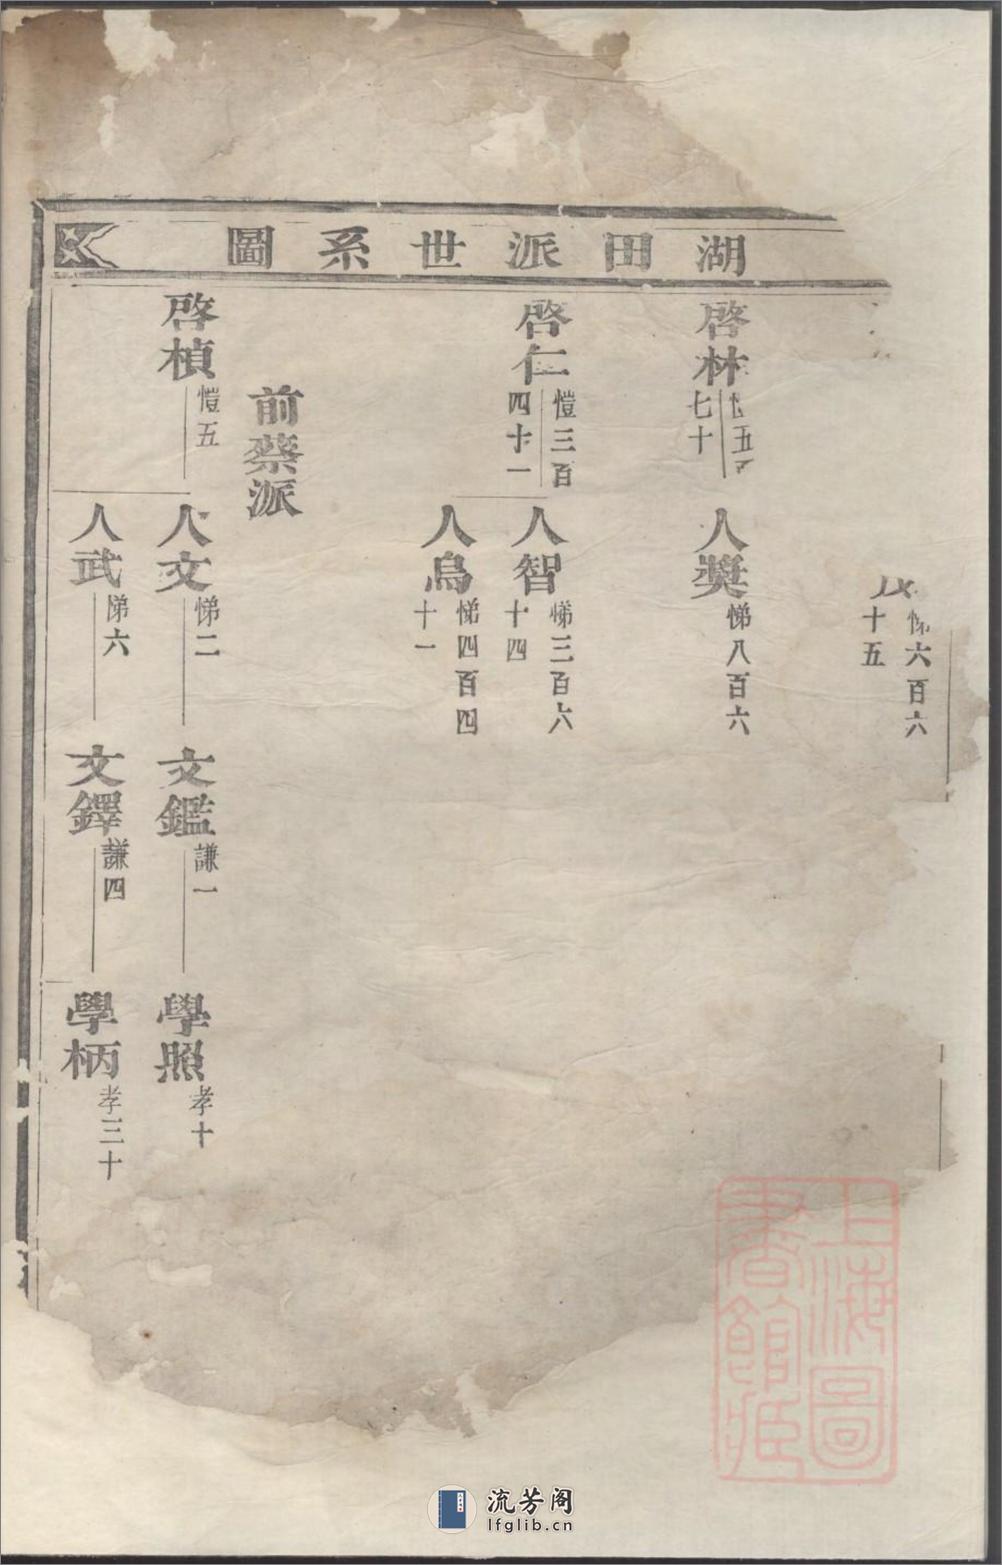 湖田派世系圖
悌六百六
十五
啓林
七十
人奬
悌八百六
啓仁
愷三百
四十一
人智
悌三百六
十四
人烏
悌四百四
十一
前蔡派
啓楨
愷五
人文
悌二
文鑑
謙一
學照
孝十
人武
悌六
文鐸
謙四
學柄
孝三十
上海圖
書館藏
流芳阁
lfglib.cn